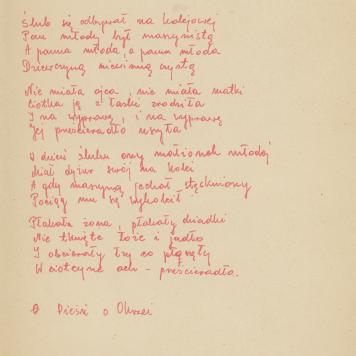 Ślub się odbywał na kolejowej
Pan młody był maszynistą
A panna młoda, a panna młoda
Dziewczyną niewinną czystą
Nie miała ojca, nie miała matki
Ciotka ją z łaski zrodziła
I na wyprawę, i na wyprawę
Jej prześcieradło uszyła
O dzień ślubu ony małżonek młody
Miał dyżur swój na kolei
A gdy maszyną jechał stęskniony
Pociąg mu się wykoleił
Płakała żona, płakały dziadki
Nie tknięte łoże i jadło
I obcierały łzy co płynęły
W ciotczyne ach - prześcieradło.
O Pieśń o Okrzei